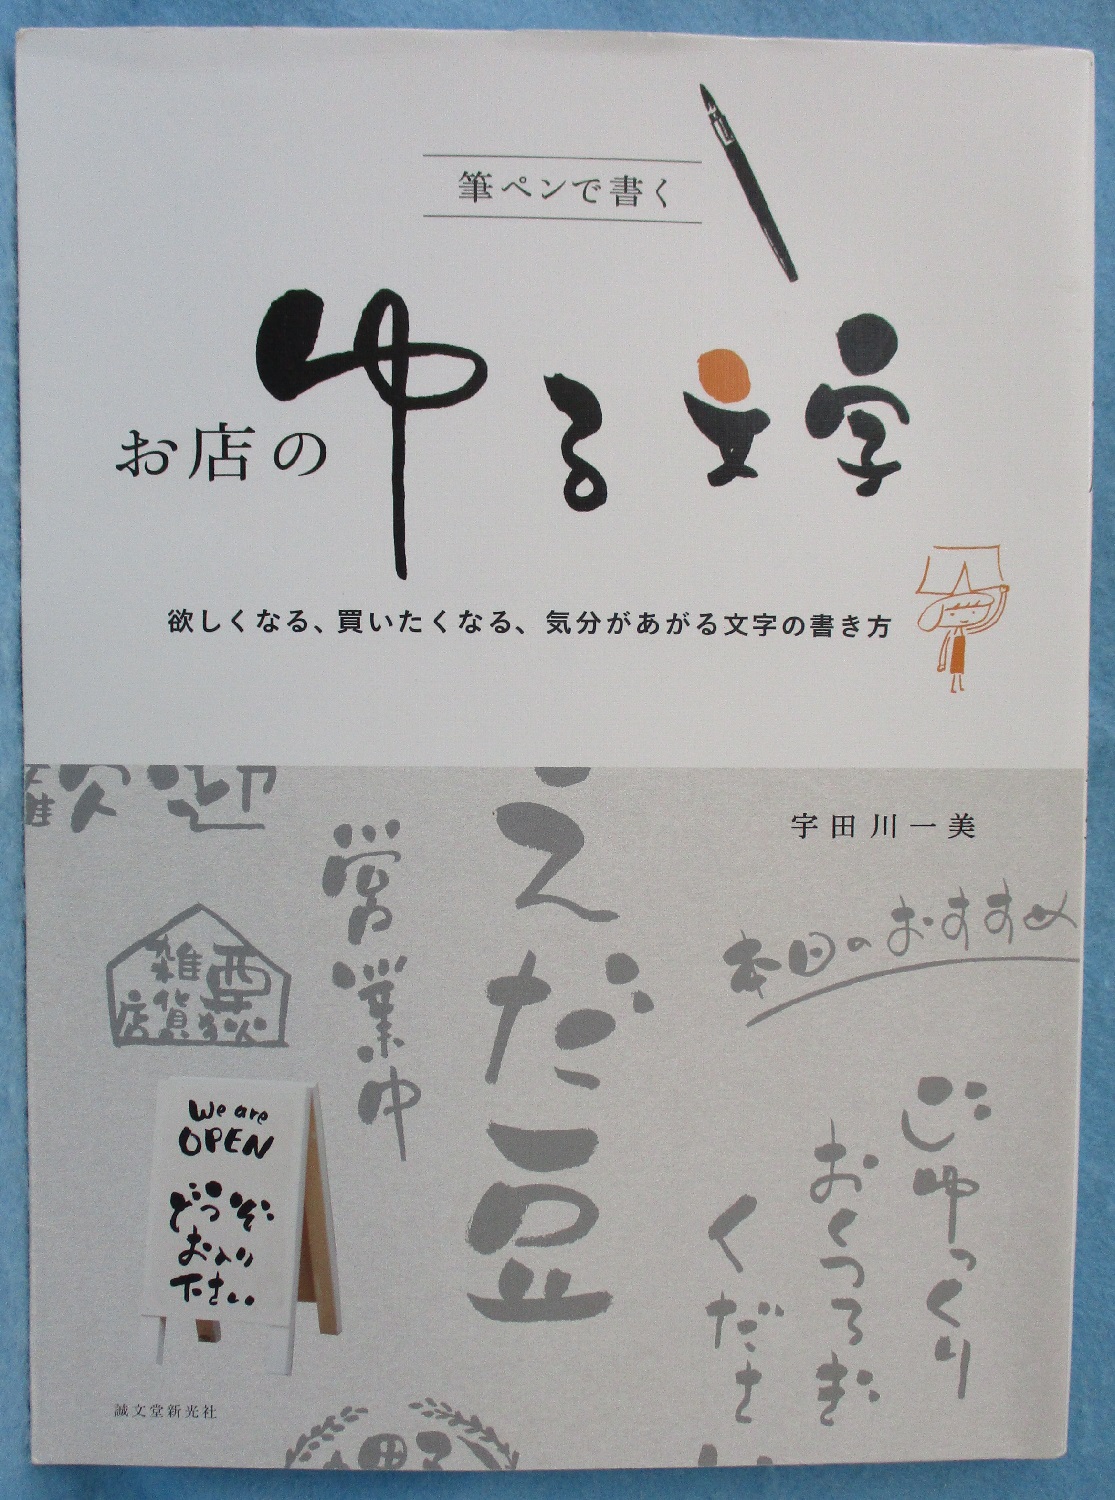 筆ペンで書く
お店の
ゆる文字
欲しくなる、買いたくなる、気分があがる文字の書き方
宇田川一美
歓迎
営業中
えだ豆
本日のおすすめ
雑貨店
We are
OPEN
どうぞ
お入り
下さい
ごゆっくり
おくつろぎ
ください
誠文堂新光社